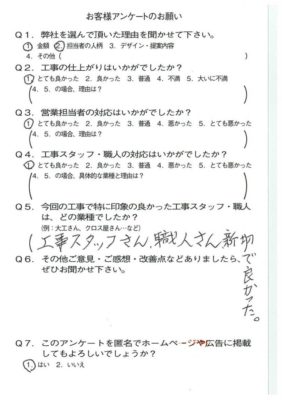 お客様アンケートのお願い
Q1. 弊社を選んで頂いた理由を聞かせて下さい。
1 金額 2 担当者の人柄 3. デザイン・提案内容
4. その他(
Q2. 工事の仕上がりはいかがでしたか?
1 とても良かった 2. 良かった 3. 普通 4. 不満 5. 大いに不満
4. 5. の場合、理由は?
Q3. 営業担当者の対応はいかがでしたか?
1 とても良かった 2. 良かった 3. 普通 4. 悪かった 5. とても悪かった
4. 5. の場合、理由は?
Q4. 工事スタッフ・職人の対応はいかがでしたか?
1 とても良かった 2. 良かった 3. 普通 4. 悪かった 5. とても悪かった
4. 5. の場合、具体的な業種と理由は?
Q5. 今回の工事で特に印象の良かった工事スタッフ・職人
は、どの業種でしたか?
(例:大工さん、クロス屋さん…など)
(工事スタッフさん、職人さん
で良かった。
Q6. その他ご意見・ご感想・改善点などありましたら、
ぜひお聞かせ下さい。
Q7. このアンケートを匿名でホームページや広告に掲載
してもよろしいでしょうか?
1. はい 2. いいえ